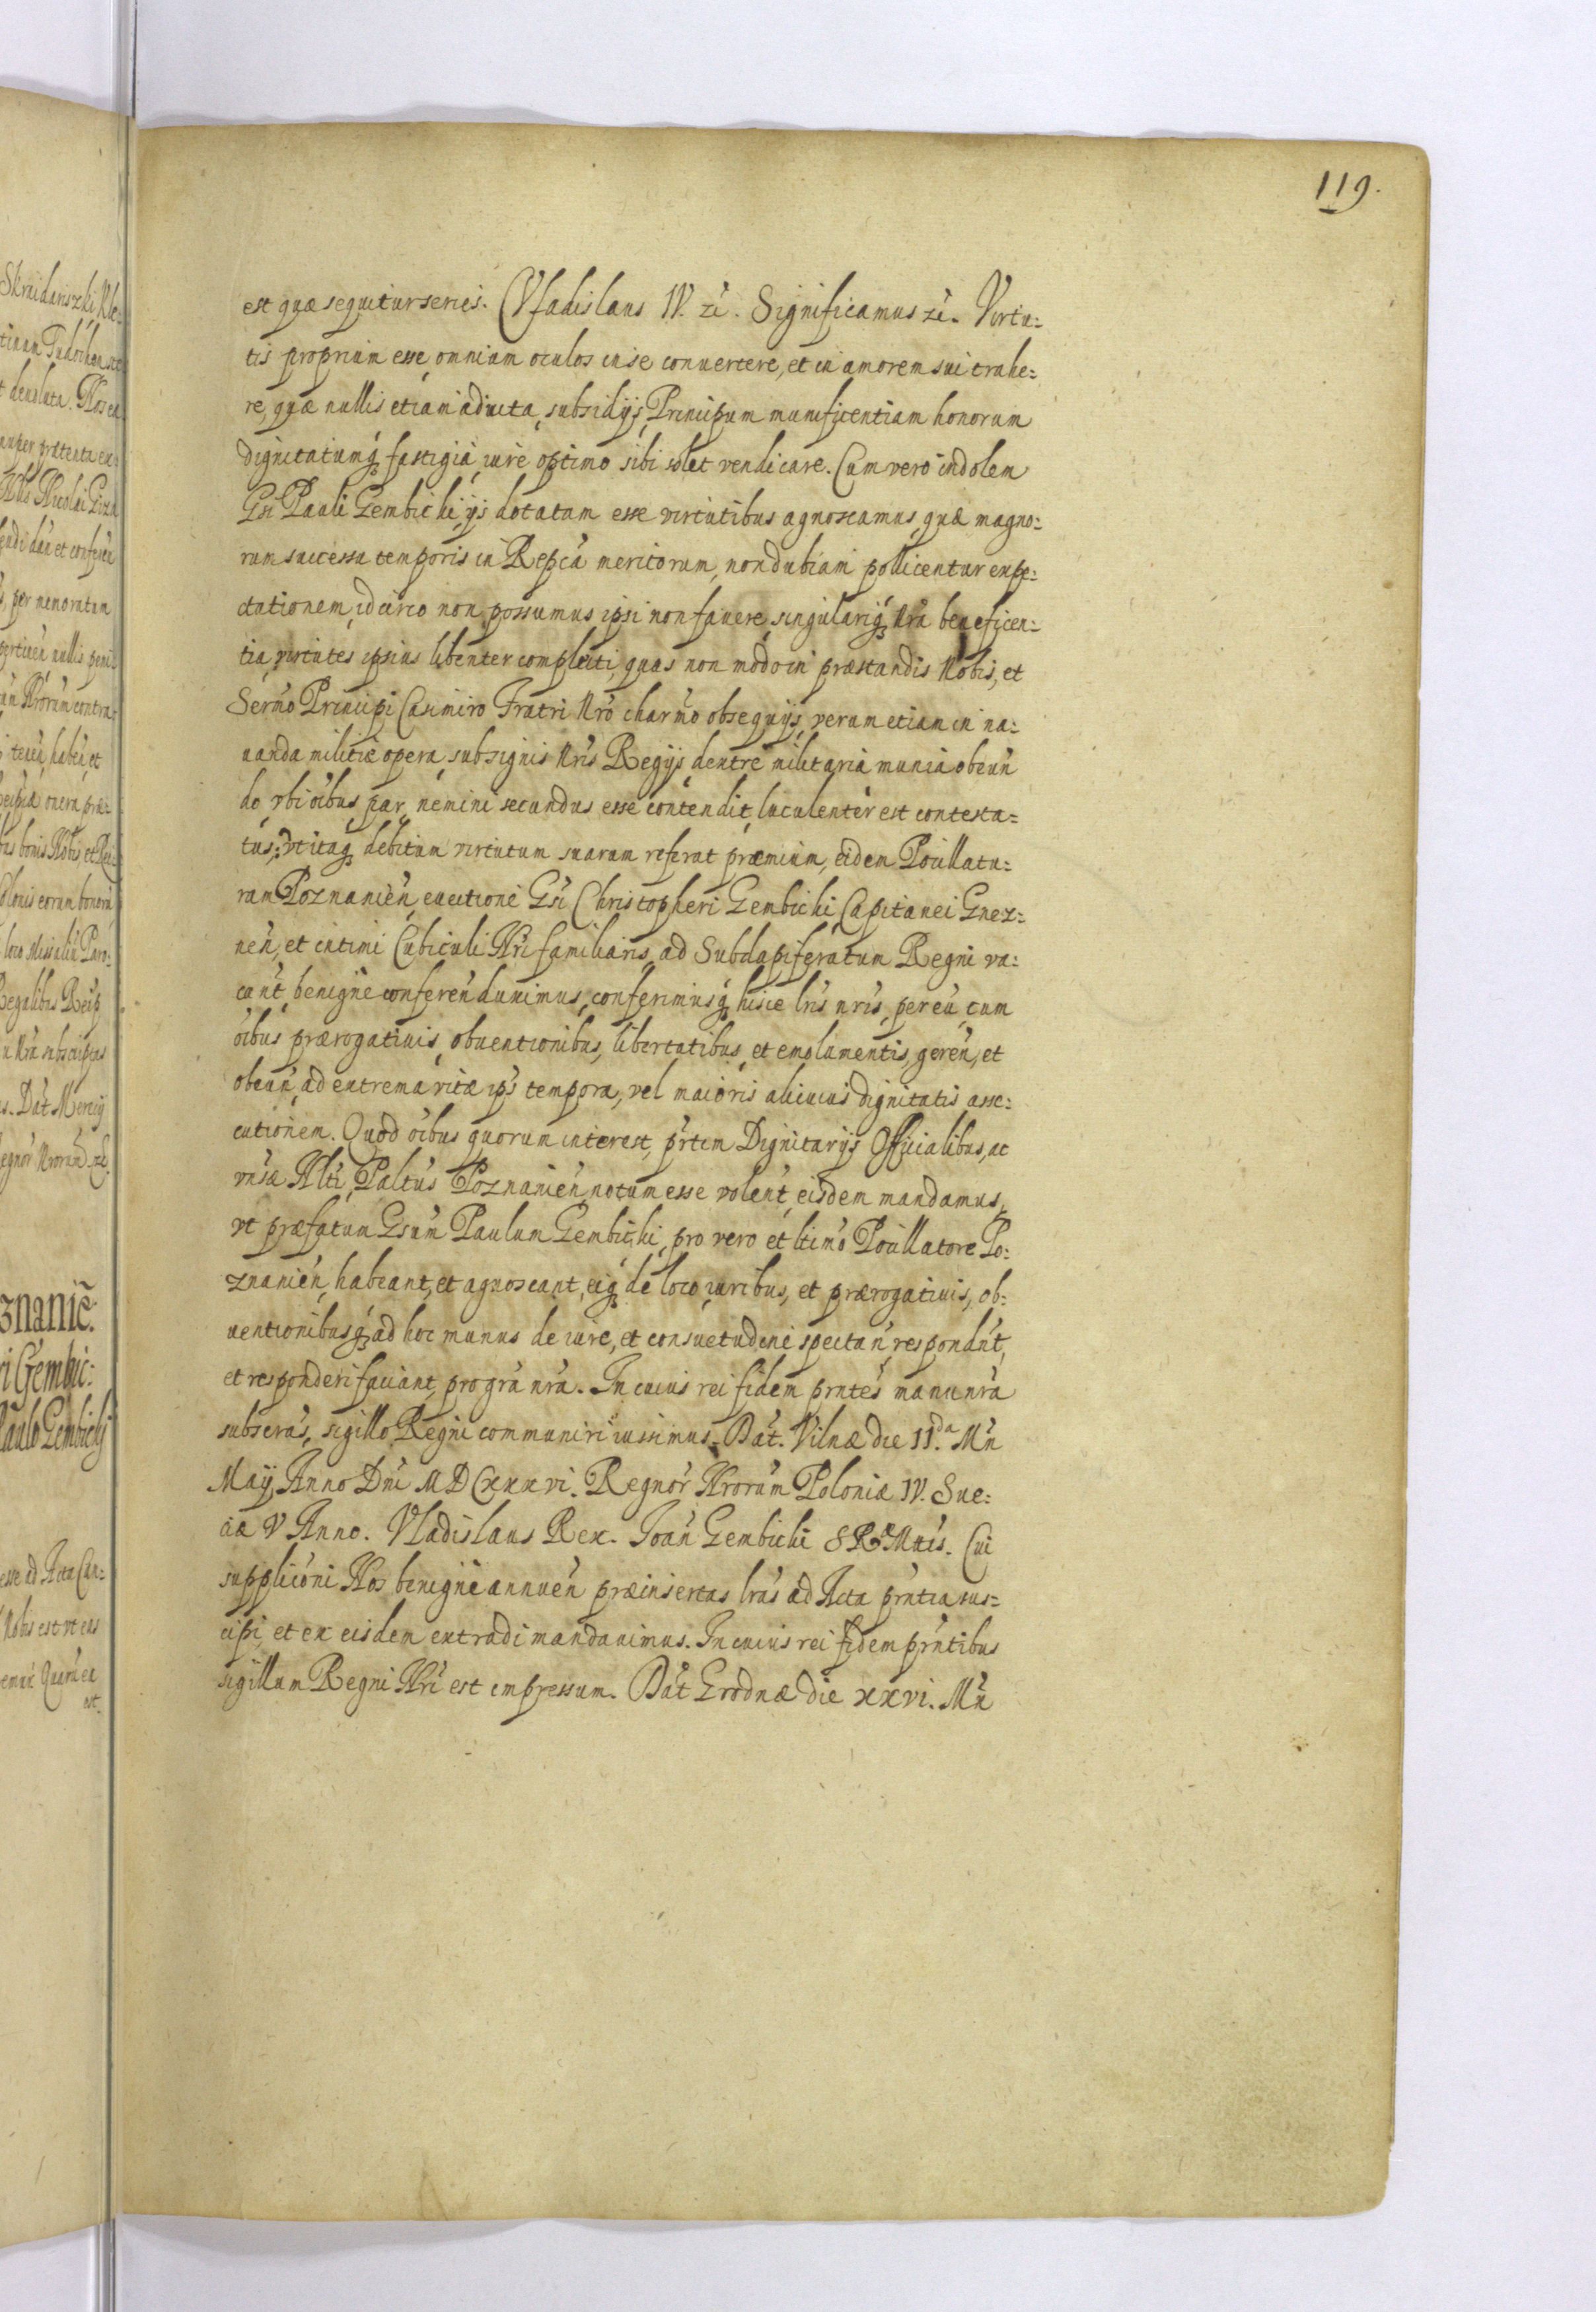 119.
est quæ sequitur series. Vladislaus IV. etc. Significamus etc. Virtu=
tis proprium esse, omnium oculos in se conuertere, et in amorem sui trahe=
re, quæ nullis etiam adiuta subsidijs, Principum munificentiam honorum
dignitatumq fastigia, iure optimo sibi solet vendicare. Cum vero indolem
Gsi Pauli Gembicki ijs dotatam esse virtutibus agnoscamus, quæ magno=
rum successu temporis in Repca meritorum, non dubiam pollicentur expe=
ctationem, idcirco non possumus ipsi non fauere, singulariq nra beneficen=
tia, virtutes ipsius libenter complecti, quas non modo in præstandis Nobis, et
Sermo Principi Casimiro Fratri Nro charmo obsequijs, verum etiam in na=
uanda militiæ opera, sub signis Nris Regijs dextre militaria munia obeun
do, vbi oibus par, nemini secundus esse contendit, luculenter est contesta=
tus; vt itaq debitum virtutum suarum referat præmium, eidem Pocillatu=
ram Poznanien, euectione Gsi Christopheri Gembicki Capitanei Gnez=
nen, et intimi Cubiculi Nri familiaris, ad Subdapiferatum Regni va=
cant, benigne conferen duximus, conferimusq hisce lris nris, per eu, cum
oibus prærogatiuis, obuentionibus, libertatibus, et emolumentis, geren, et
obeun, ad extrema vitæ ips tempora, vel maioris alicuius dignitatis asse=
cutionem. Quod oibus quorum interest, prtim Dignitarijs Officialibus, ac
vnsæ Nlti, Paltus Poznanien, notum esse volent, eisdem mandamus,
vt præfatum Gsum Paulum Gembicki, pro vero et ltimo Pocillatore Po=
znanien, habeant, et agnoscant, eiq de loco, iuribus, et prærogatiuis, ob=
uentionibusq, ad hoc munus de iure, et consuetudine spectan, respondnt,
et responderi faciant, pro gra nra. In cuius rei fidem prntes manu nra
subscras, sigillo Regni communiri iussimus. Dat. Vilnæ die 11.da Mn
Maij, Anno Dni MDCxxxvi. Regnor Nrorum Poloniæ IV. Sue=
ciæ V Anno. Vladislaus Rex. Joan Gembicki SRMttis. Cui
supplicōni Nos benigne annuen præinsertas lras ad Acta prntia sus=
cipi, et ex eisdem extradi mandauimus. In cuius rei fidem prntibus
sigillum Regni Nri est impressum. Dat Grodnæ die xxvi. Mn